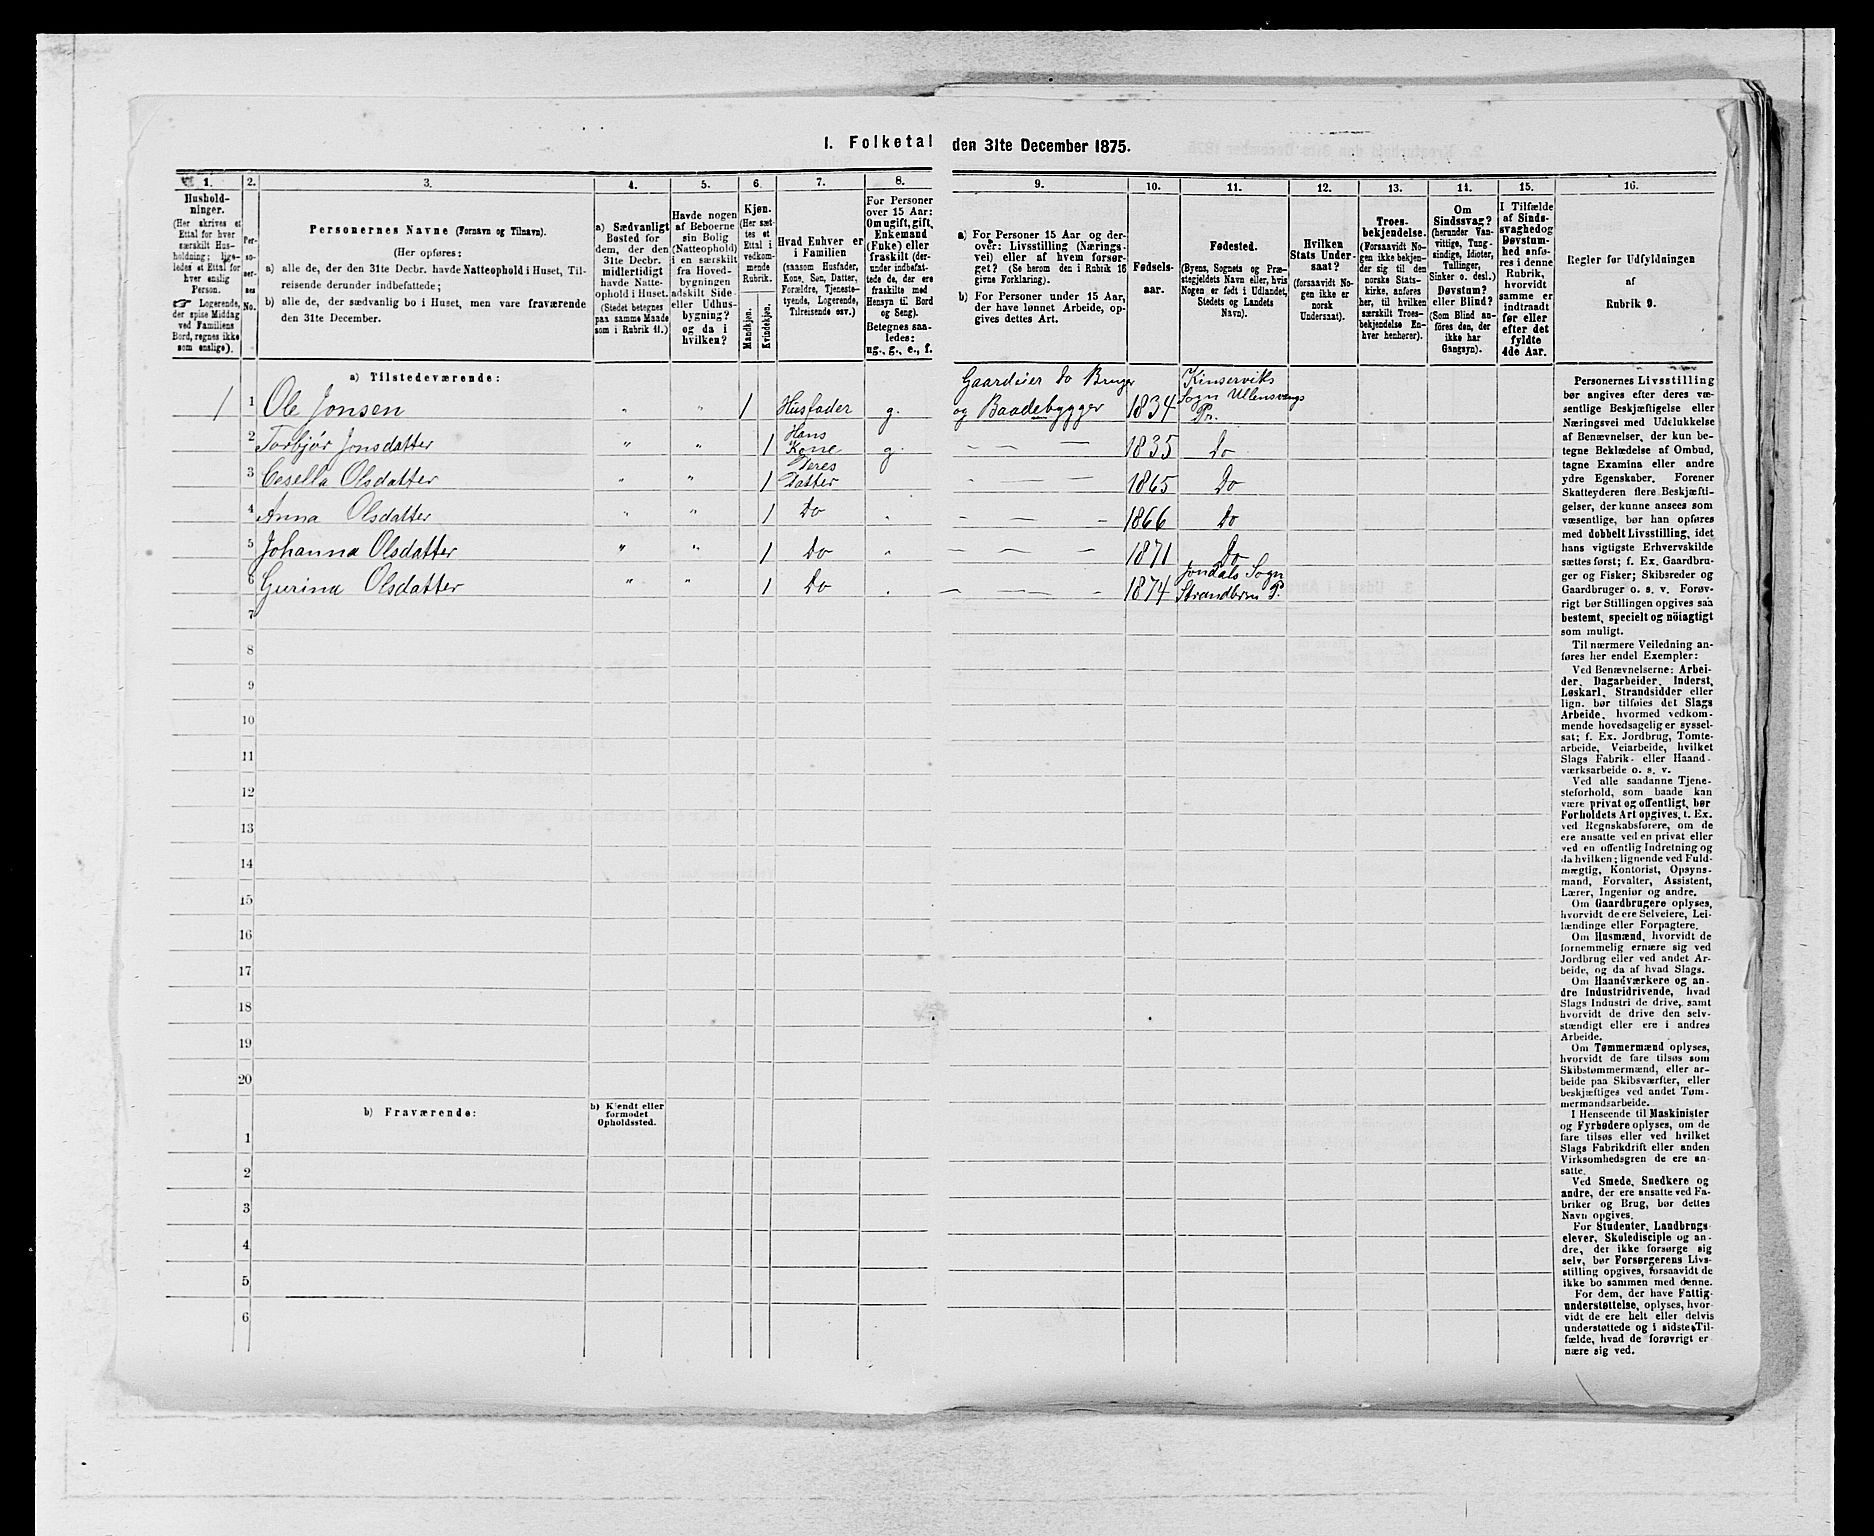 I. Folketal den 31te December 1875.
1.
Hushold-
ninger.
(Her skrives et
Ettal for hver
særskilt Hus-
holdning; lige-
ledes et Ettal for
hver enslig
Person.
☞ Logerende,
der spise Middag
ved Familiens
Bord, regnes ikke
som enslige).
2.
Per-
so-
ner-
nes
No.
3.
Personernes Navne (Fornavn og Tilnavn).
(Her opføres:
a) alle de, der den 31te Decbr. havde Natteophold i Huset, Til-
reisende derunder indbefattede;
b) alle de, der sædvanlig bo i Huset, men vare fraværende
den 31te December.
4.
a) Sædvanligt
Bosted for
dem, der den
31te Decbr.
midlertidigt
havde Natte-
ophold i Huset.
(Stedet betegnes
paa samme Maade
som i Rubrik 11.)
5.
Havde nogen
af Beboerne
sin Bolig
(Natteophold)
i en særskilt
fra Hoved-
bygningen
adskilt Side-
eller Udhus-
bygning?
og da i
hvilken?
6.
Kjøn.
(Her sæt-
tes et
Ettal i
vedkom-
mende
Rubrik.
Mandkjøn.
Kvindekjøn.
7.
Hvad Enhver er
i Familien
(saasom Husfader,
Kone, Søn, Datter,
Forældre, Tjeneste-
tyende, Logerende,
Tilreisende osv.)
8.
For Personer
over 15 Aar:
Om ugift, gift,
Enkemand
(Enke) eller
fraskilt (der-
under indbefat-
tede de, der ere
fraskilte med
Hensyn til Bord
og Seng).
Betegnes saa-
ledes:
ug., g., e., f.
9.
a) For Personer 15 Aar og der-
over: Livsstilling (Nærings-
vei) eller af hvem forsør-
get? (Se herom den i Rubrik 16
givne Forklaring).
b) For Personer under 15 Aar,
der have lønnet Arbeide, op-
gives dettes Art.
10.
Fødsels-
aar.
11.
Fødested.
(Byens, Sognets og Præ-
stegjeldets Navn eller, hvis
Nogen er født i Udlandet,
Stedets og Landets
Navn).
12.
Hvilken
Stats Under-
saat?
(forsaavidt No-
gen ikke er
norsk
Undersaat).
13.
Troes-
bekjendelse.
(Forsaavidt No-
gen ikke bekjen-
der sig til den
norske Stats-
kirke, anføres
her, til hvilken
særskilt Troes-
bekjendelse En-
hver henhører).
14.
Om
Sindssvag?
(herunder Van-
vittige, Tung-
sindige, Idioter,
Tullinger,
Sinker o. desl.)
Døvstum?
eller Blind?
(Som Blind an-
føres den, der
ikke har
Gangsyn).
15.
I Tilfælde
af Sinds-
svaghed og
Døvstum-
hed anfø-
res i denne
Rubrik,
hvorvidt
samme er
indtraadt
før eller
efter det
fyldte
4de Aar.
16.
Regler for Udfyldningen
af
Rubrik 9.
a) Tilstedeværende:
1 1 Ole Jonsen " " 1 Husfader g. Gaardeier do Bruger og Baadebygger 1834 Kinserviks Sogn Ullensvangs Pr.
2 Torbjør Jonsdatter " " 1 Hans Kone g. — — — 1835 Do
3 Cesella Olsdatter " " 1 Deres Datter — — — 1865 Do
4 Anna Olsdatter " " 1 Do " — — — 1866 Do
5 Johanna Olsdatter " " 1 Do " — — — 1871 Do
6 Gurina Olsdatter " " 1 Do " — — — 1874 Jondals Sogn Strandbrm P.
7
8
9
10
11
12
13
14
15
16
17
18
19
20
b) Fraværende:
b) Kjendt eller
formodet
Opholdssted.
1
2
3
4
5
6
Personernes Livsstilling
bør angives efter deres væ-
sentlige Beskjæftigelse eller
Næringsvei med Udelukkelse
af Benævnelser, der kun be-
tegne Beklædelse af Ombud,
tagne Examina eller andre
ydre Egenskaber. Forener
Skatteyderen flere Beskjæfti-
gelser, der kunne ansees som
væsentlige, bør han opføres
med dobbelt Livsstilling, idet
hans vigtigste Erhvervskilde
sættes først; f. Ex. Gaardbru-
ger og Fisker; Skibsreder og
Gaardbruger o. s. v. Forøv-
rigt bør Stillingen opgives saa
bestemt, specielt og nöiagtigt
som muligt.
Til nærmere Veiledning an-
føres her endel Exempler:
Ved Benævnelserne: Arbei-
der, Dagarbeider, Inderst,
Løskarl, Strandsidder eller
lign. bør tilføies det Slags
Arbeide, hvormed vedkom-
mende hovedsagelig er syssel-
sat; f. Ex. Jordbrug, Tomte-
arbeide, Veiarbeide, hvilket
Slags Fabrik- eller Haand-
værksarbeide o. s. v.
Ved alle saadanne Tjene-
steforhold, som baade kan
være privat og offentligt, bør
Forholdets Art opgives, t. Ex.
ved Regnskabsførere, om de
ere ansatte ved en privat eller
ved en offentlig Indretning og
da hvilken; lignende ved Fuld-
mægtig, Kontorist, Opsyns-
mand, Forvalter, Assistent,
Lærer, Ingeniør og andre.
Om Gaardbrugere oplyses,
hvorvidt de ere Selveiere, Lei-
lændinge eller Forpagtere.
Om Husmænd, hvorvidt de
fornemmelig ernære sig ved
Jordbrug eller ved andet Ar-
beide, og da af hvad Slags.
Om Haandværkere og an-
dre Industridrivende, hvad
Slags Industri de drive, samt
hvorvidt de drive den selv-
stændigt eller ere i andres
Arbeide.
Om Tømmermænd oplyses,
hvorvidt de fare tilsøs som
Skibstømmermænd, eller ar-
beide paa Skibsværfter, eller
beskjæftiges ved andet Tøm-
mermandsarbeide.
I Henseende til Maskinister
og Fyrbødere oplyses, om de
fare tilsøs eller ved hvilket
Slags Fabrikdrift eller anden
Virksomhedsgren de ere an-
satte.
Ved Smede, Snedkere og
andre, der ere ansatte ved Fa-
briker og Brug, bør dettes
Navn opgives.
For Studenter, Landbrugs-
elever, Skoledisciple og an-
dre, der ikke forsørge sig
selv, bør Forsørgerens Livs-
stilling opgives, forsaavidt de
ikke bo sammen med denne.
For dem, der have Fattig-
understøttelse, oplyses, hvor-
vidt de ere helt eller delvis
understøttede og i sidste Til-
fælde, hvad de forøvrigt er-
nære sig ved.